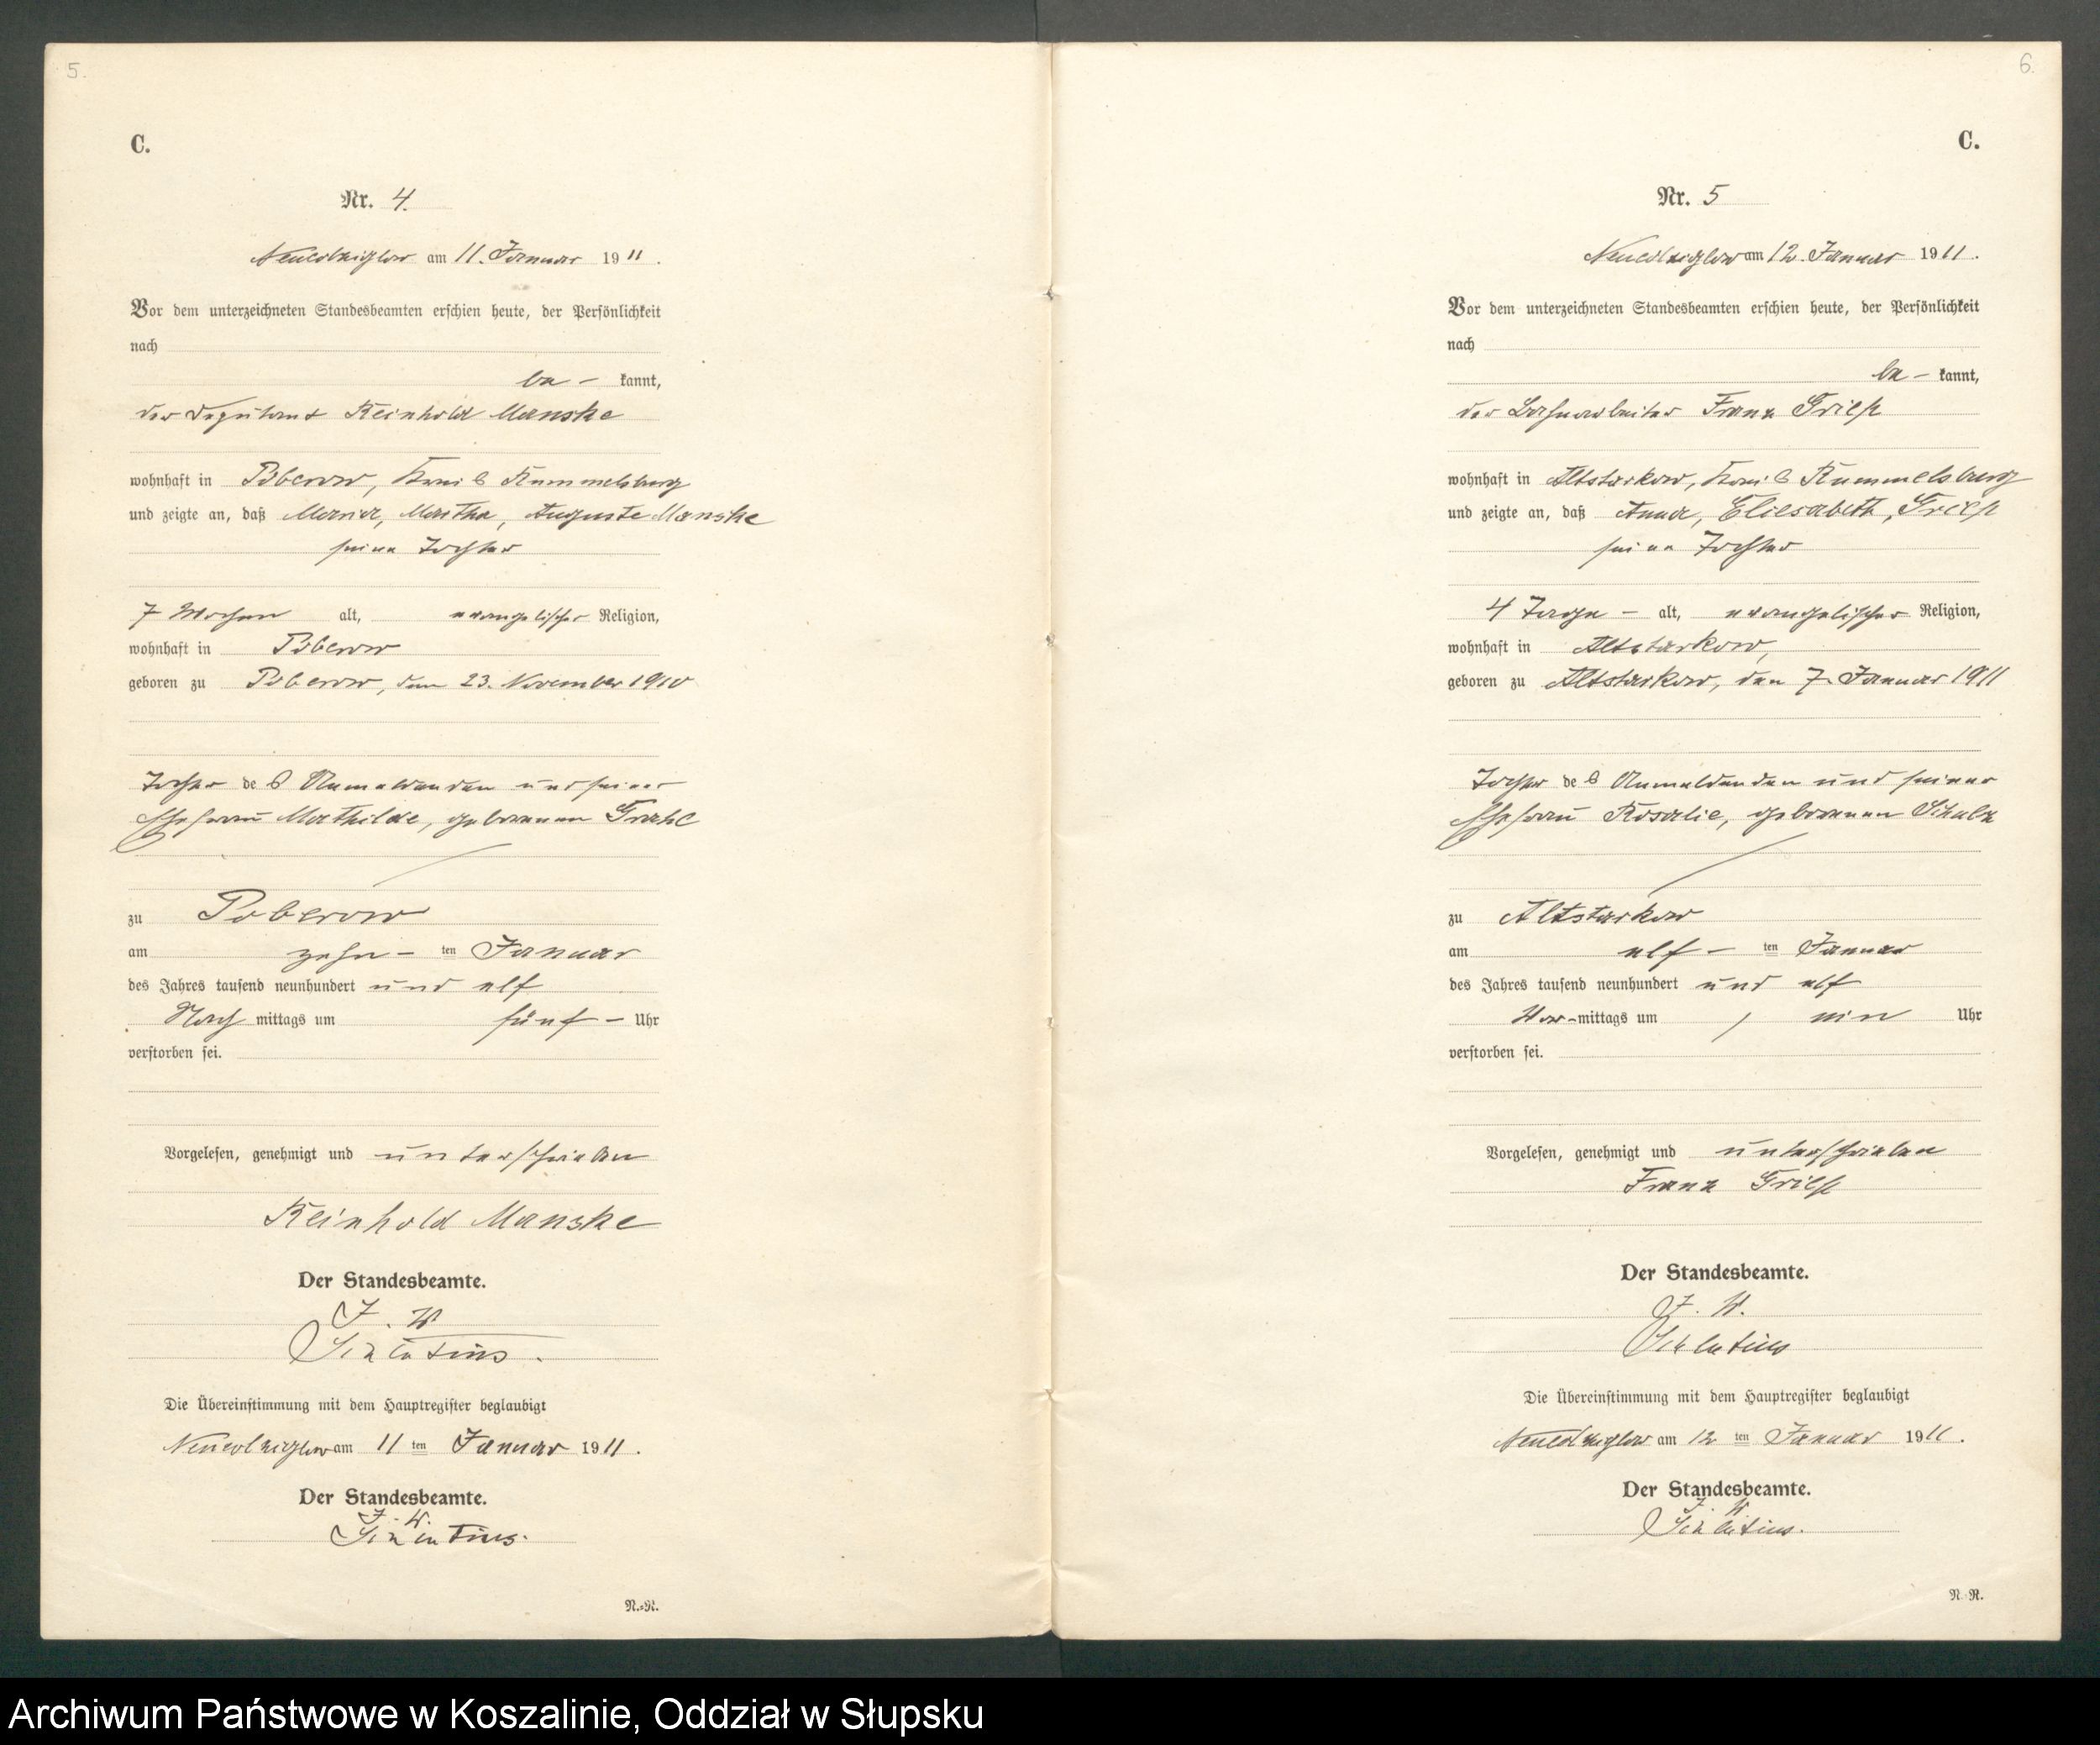 5.
C.
Nr. 4.
Neukolziglow am 11. Januar 1911.
Vor dem unterzeichneten Standesbeamten erschien heute, der Persönlichkeit
nach
be- kannt,
der Deputant Reinhold Manske
wohnhaft in Poberow, Kreis Rummelsburg
und zeigte an, daß Maria, Martha, Auguste Manske
seine Tochter
7 Wochen alt, evangelischer Religion,
wohnhaft in Poberow
geboren zu Poberow, den 23. November 1910
Tochter des Anmeldenden und seiner
Ehefrau Mathilde, geborenen
zu Poberow
am zehn- ten Januar
des Jahres tausend neunhundert und elf
Nach mittags um fünf- Uhr
verstorben sei.
Vorgelesen, genehmigt und unterschrieben
Reinhold Manske
Der Standesbeamte.
J. V.
Die Übereinstimmung mit dem Hauptregister beglaubigt
Neukolziglow am 11 ten Januar 1911.
Der Standesbeamte.
J. V.
N.-R.
6.
C.
Nr. 5
Neukolziglow am 12. Januar 1911.
Vor dem unterzeichneten Standesbeamten erschien heute, der Persönlichkeit
nach
be- kannt,
der Bahnarbeiter Franz
wohnhaft in Altstarkow, Kreis Rummelsburg
und zeigte an, daß Anna, Eliesabeth,
seine Tochter
4 Tage - alt, evangelischer Religion,
wohnhaft in Altstarkow,
geboren zu Altstarkow, den 7. Januar 1911
Tochter des Anmeldenden und seiner
Ehefrau Rosalie, geborenen Schulz
zu Altstarkow
am elf- ten Januar
des Jahres tausend neunhundert und elf
Vor-mittags um ein Uhr
verstorben sei.
Vorgelesen, genehmigt und unterschrieben
Franz
Der Standesbeamte.
J. V.
Die Übereinstimmung mit dem Hauptregister beglaubigt
Neukolziglow am 12 ten Januar 1911.
Der Standesbeamte.
J. V.
N.-R.
Archiwum Państwowe w Koszalinie, Oddział w Słupsku